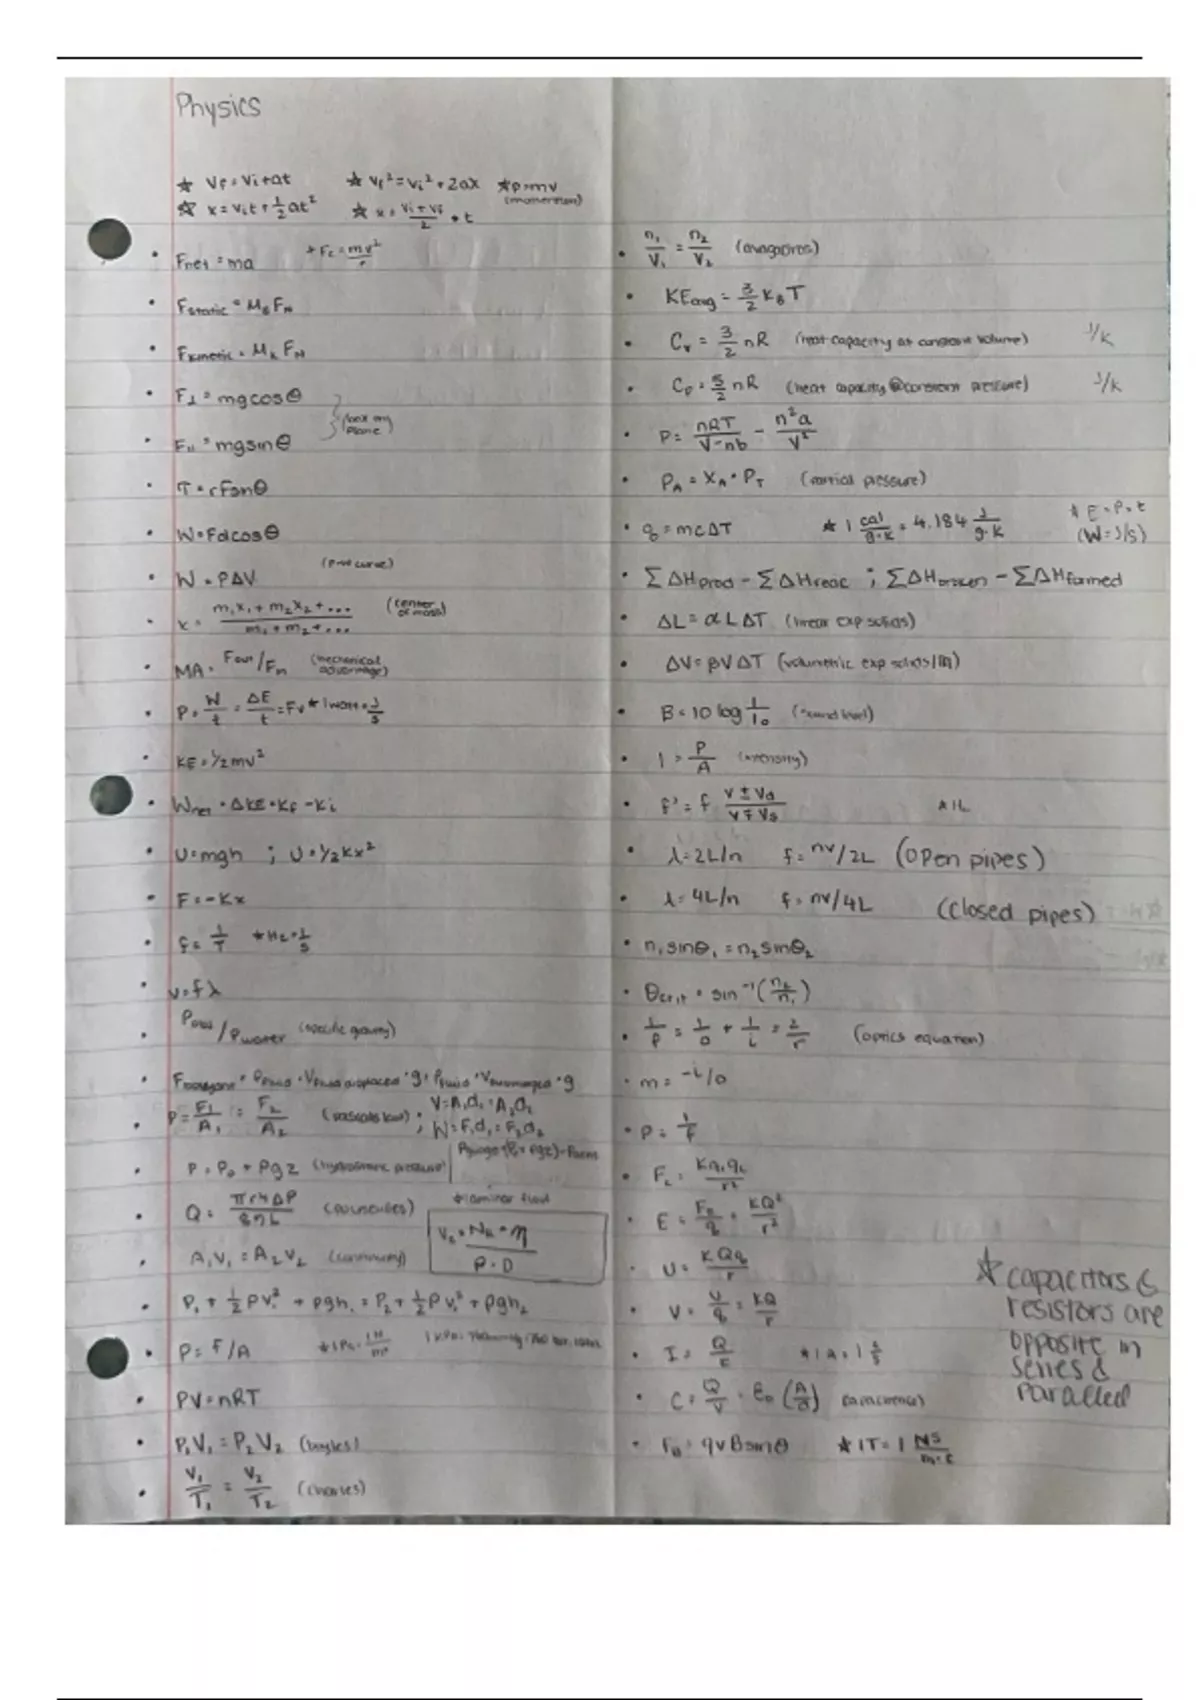 Physics
★ Vf = Vi + at ★ Vf² = Vi² + 2ax ★ p = mv
★ x = Vit + ½at² ★ x = (Vi + Vf)/2 • t (momentum)
• Fnet = ma * Fc = mv²/r
• Fstatic = Ms FN
• Fkinetic = Mk FN
• F⊥ = mgcosθ
• F∥ = mgsinθ
• T = rFsinθ
• W = Fdcosθ
• W = PΔV (P-V curve)
• x = (m₁x₁ + m₂x₂ + ...)/(m₁ + m₂ + ...) (center of mass)
• MA = Fout/Fin (mechanical advantage)
• P = W/t = ΔE/t = Fv * 1 watt = J/s
• KE = 1/2mv²
• Wnet = ΔKE = Kf - Ki
• U = mgh ; U = 1/2Kx²
• F = -Kx
• f = 1/T * Hz = 1/s
• v = fλ
• /ρwater (specific gravity)
• Fbuoyant = ρfluid • Vfluid displaced • g = ρfluid • Vsubmerged • g
• P = F₁/A₁ = F₂/A₂ (pascals law) ; V = A₁d₁ = A₂d₂
; W = F₁d₁ = F₂d₂
• P = P₀ + ρgz (hydrostatic pressure) Pgauge = (P₀ + ρgz) - Patm
• Q = πr⁴ΔP/8ηL (poiseuilles) * laminar flow
Vc = NR • η/ρ • D
• A₁V₁ = A₂V₂ (continuity)
• P₁ + ½ρv₁² + ρgh₁ = P₂ + ½ρv₂² + ρgh₂
• P = F/A * 1Pa = 1N/m²
• PV = nRT
• P₁V₁ = P₂V₂ (boyles)
• V₁/T₁ = V₂/T₂ (charles)
• n₁/V₁ = n₂/V₂ (avagadros)
• KEavg = 3/2 KBT
• Cv = 3/2 nR (heat capacity at constant volume) J/K
• Cp = 5/2 nR (heat capacity @ constant pressure) J/K
• P = nRT/(V-nb) - n²a/V²
• PA = XA • PT (partial pressure)
• q = mcΔT ★ 1 cal/g·K = 4.184 J/g·K * E = P • t
(W = J/s)
• ΣΔHprod - ΣΔHreac ; ΣΔHbroken - ΣΔHformed
• ΔL = αLΔT (linear exp solids)
• ΔV = βVΔT (volumetric exp solids/liq)
• B = 10 log I/I₀ (sound level)
• I = P/A (intensity)
• f' = f (V ± Vd)/(V ∓ Vs)
• λ = 2L/n f = nv/2L (open pipes)
• λ = 4L/n f = nv/4L (closed pipes)
• n₁sinθ₁ = n₂sinθ₂
• θcrit = sin⁻¹(n₂/n₁)
• 1/f = 1/o + 1/i = 2/r (optics equation)
• m = -i/o
• P = 1/f
• Kq₁q₂/r²
• E = Fe/q = KQ/r²
• U = KQq/r
• V = U/q = KQ/r
• I = Q/t * 1A = 1
• C = Q/V = ε₀(A/d) (capacitance)
• FB = qvBsinθ ★ 1T = 1 NS/m·C
★ capacitors &
resistors are
opposite in
series &
paralled